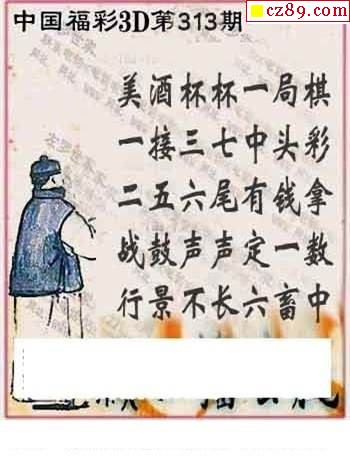 cz89.com
中国福彩3D第313期
美酒杯杯一局棋
一接三七中头彩
二五六尾有钱拿
战鼓声声定一数
行景不长六畜中